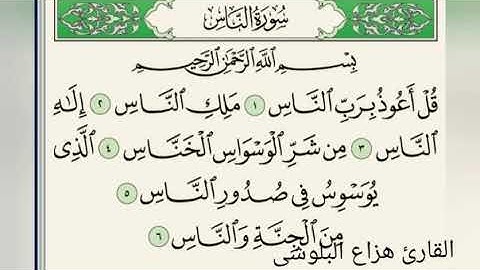 سُورَةُ النَّاسِ
بِسْمِ ٱللَّهِ ٱلرَّحْمَٰنِ ٱلرَّحِيمِ
قُلْ أَعُوذُ بِرَبِّ ٱلنَّاسِ ١ مَلِكِ ٱلنَّاسِ ٢ إِلَٰهِ
ٱلنَّاسِ ٣ مِن شَرِّ ٱلْوَسْوَاسِ ٱلْخَنَّاسِ ٤ ٱلَّذِى
يُوَسْوِسُ فِى صُدُورِ ٱلنَّاسِ ٥
مِنَ ٱلْجِنَّةِ وَٱلنَّاسِ ٦
القارئ هزاع البلوشي